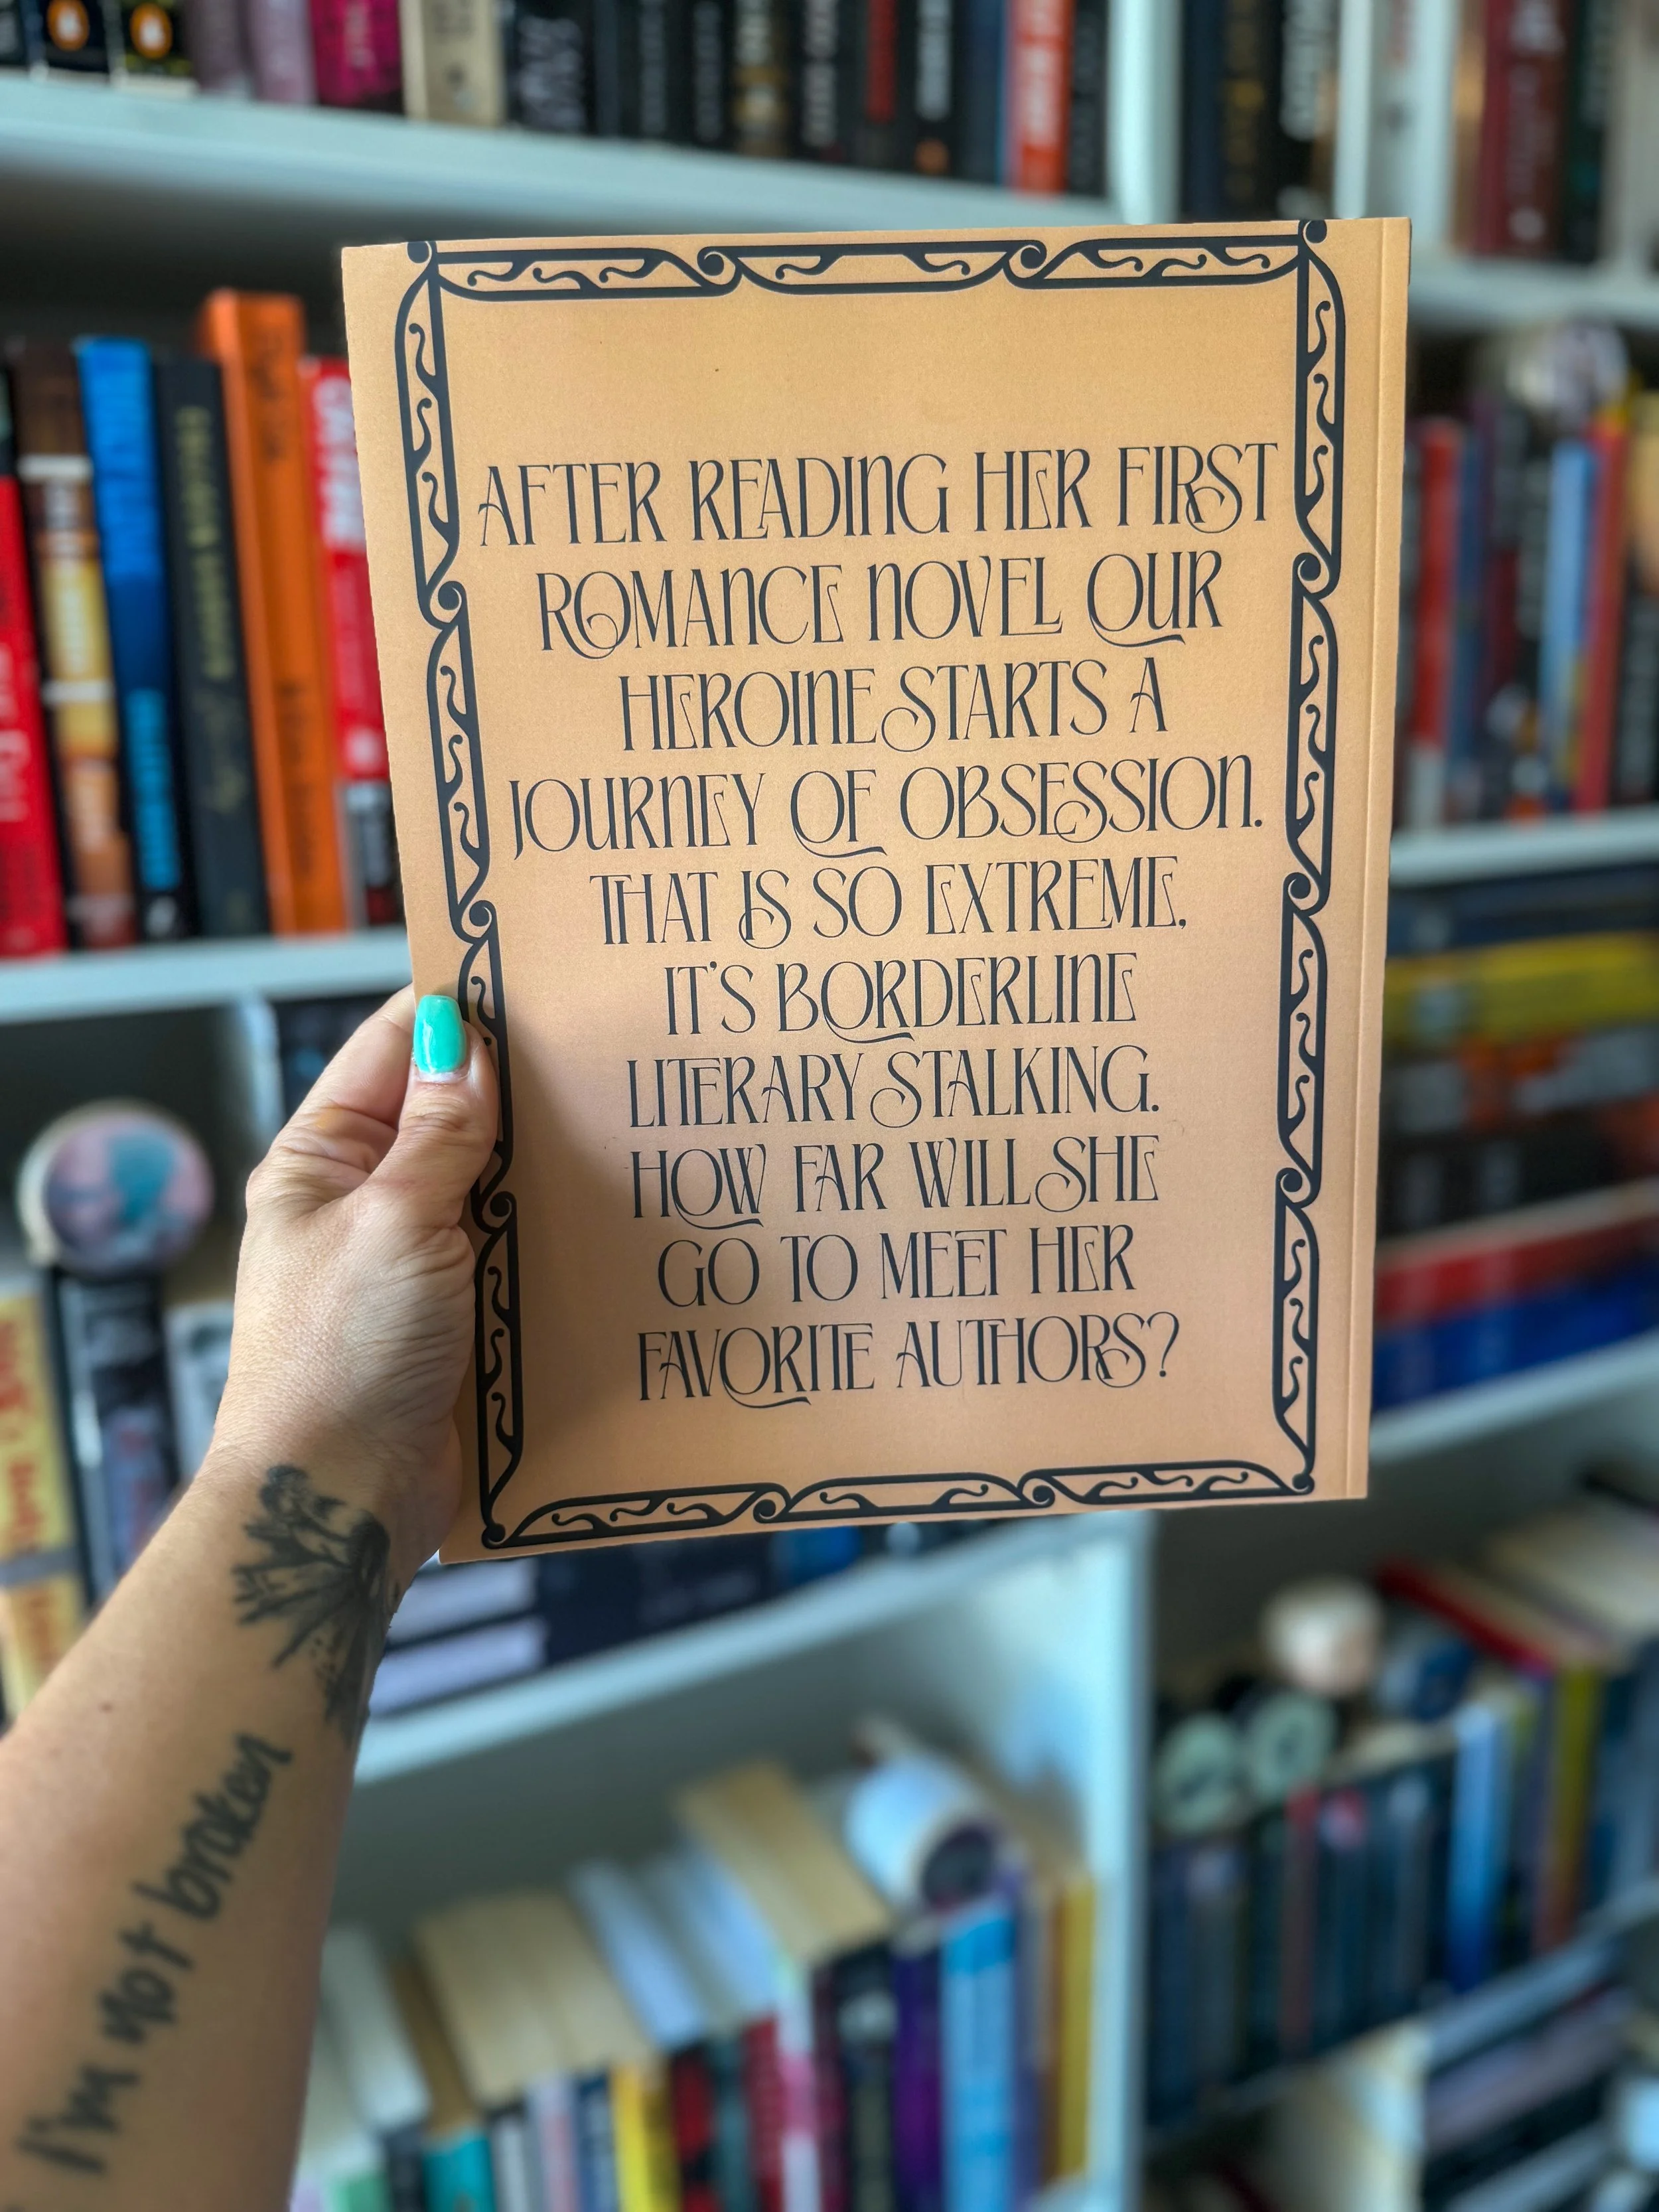 AFTER READING HER FIRST
ROMANCE NOVEL OUR
HEROINE STARTS A
JOURNEY OF OBSESSION.
THAT IS SO EXTREME,
IT'S BORDERLINE
LITERARY STALKING.
HOW FAR WILL SHE
GO TO MEET HER
FAVORITE AUTHORS?
I'm not broken